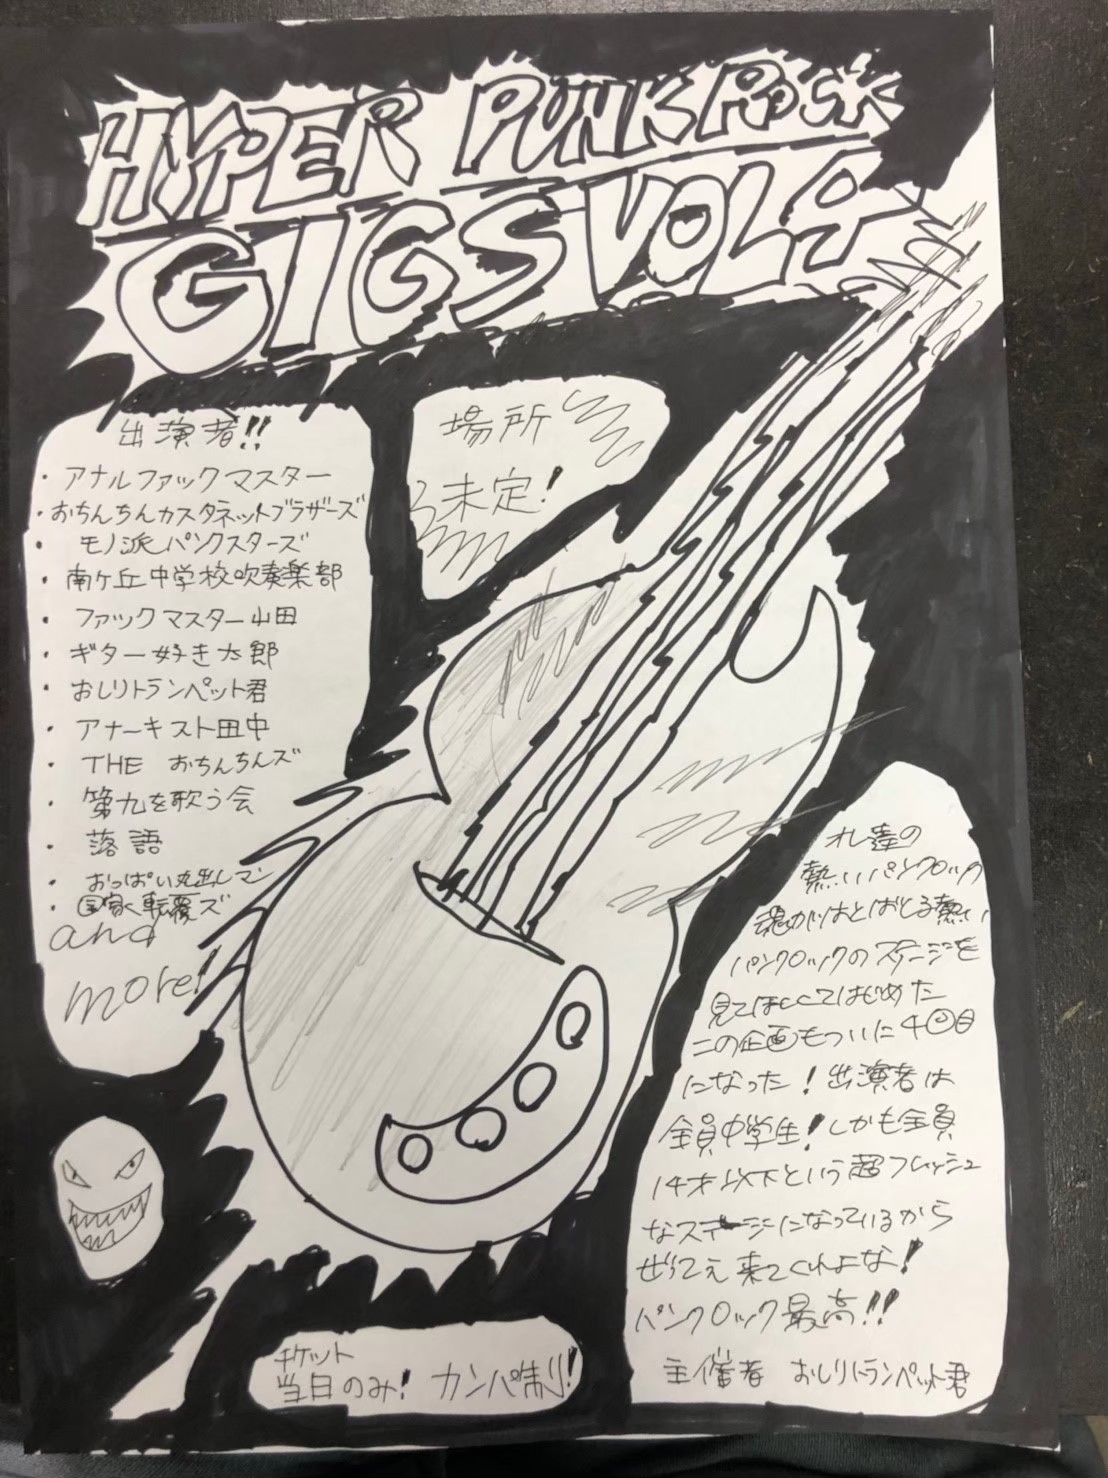 HYPER PUNK ROCK
GIGS VOL4
出演者!!
・アナルファックマスター
・おちんちんカスタネットブラザーズ
・モノ派パンクスターズ
・南ヶ丘中学校吹奏楽部
・ファックマスター山田
・ギター好き太郎
・おしりトランペット君
・アナーキスト田中
・THE おちんちんズ
・第九を歌う会
・落語
・おっぱい丸出しマン
・国家転覆ズ
and
more!
場所
未定!
オレ達の
熱いパンクロック
魂がほとばしる熱い
パンクロックのステージを
見てほしくてはじめた
この企画もついに4回目
になった!出演者は
全員中学生!しかも全員
14才以下という超フレッシュ
なステージになっているから
ぜってぇ来てくれよな!
パンクロック最高!!
主催者 おしりトランペット君
チケット
当日のみ! カンパ制!